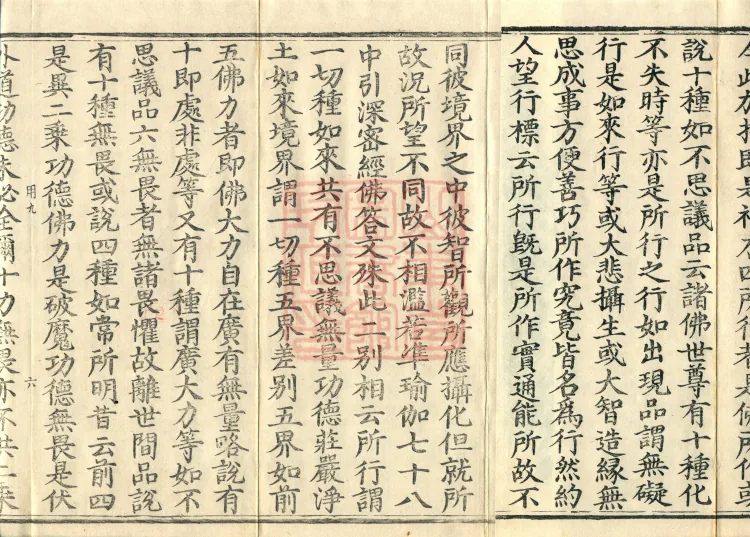 四所行者
說十種如不思議品云諸佛世尊有十種化
不失時等亦是所行之行如出現品謂無礙
行是如來行等或大悲攝生或大智造緣無
思成事方便善巧所作究竟皆名爲行然約
人望行標云所行旣是所作實通能所故不
同彼境界之中彼智所觀所應攝化但就所
故況所望不同故不相濫若準瑜伽七十八
中引深密經佛答文殊此二別相云所行謂
一切種如來共有不思議無量功德莊嚴淨
土如來境界謂一切種五界差別五界如前
五佛力者即佛大力自在廣有無量略說有
十即處非處等又有十種謂廣大力等如不
思議品六無畏者無諸畏懼故離世間品說
有十種無畏或說四種如常所明昔云前四
是異二乘功德佛力是破魔功德無畏是伏
用九 六
外道功德十力無畏亦不共二乘